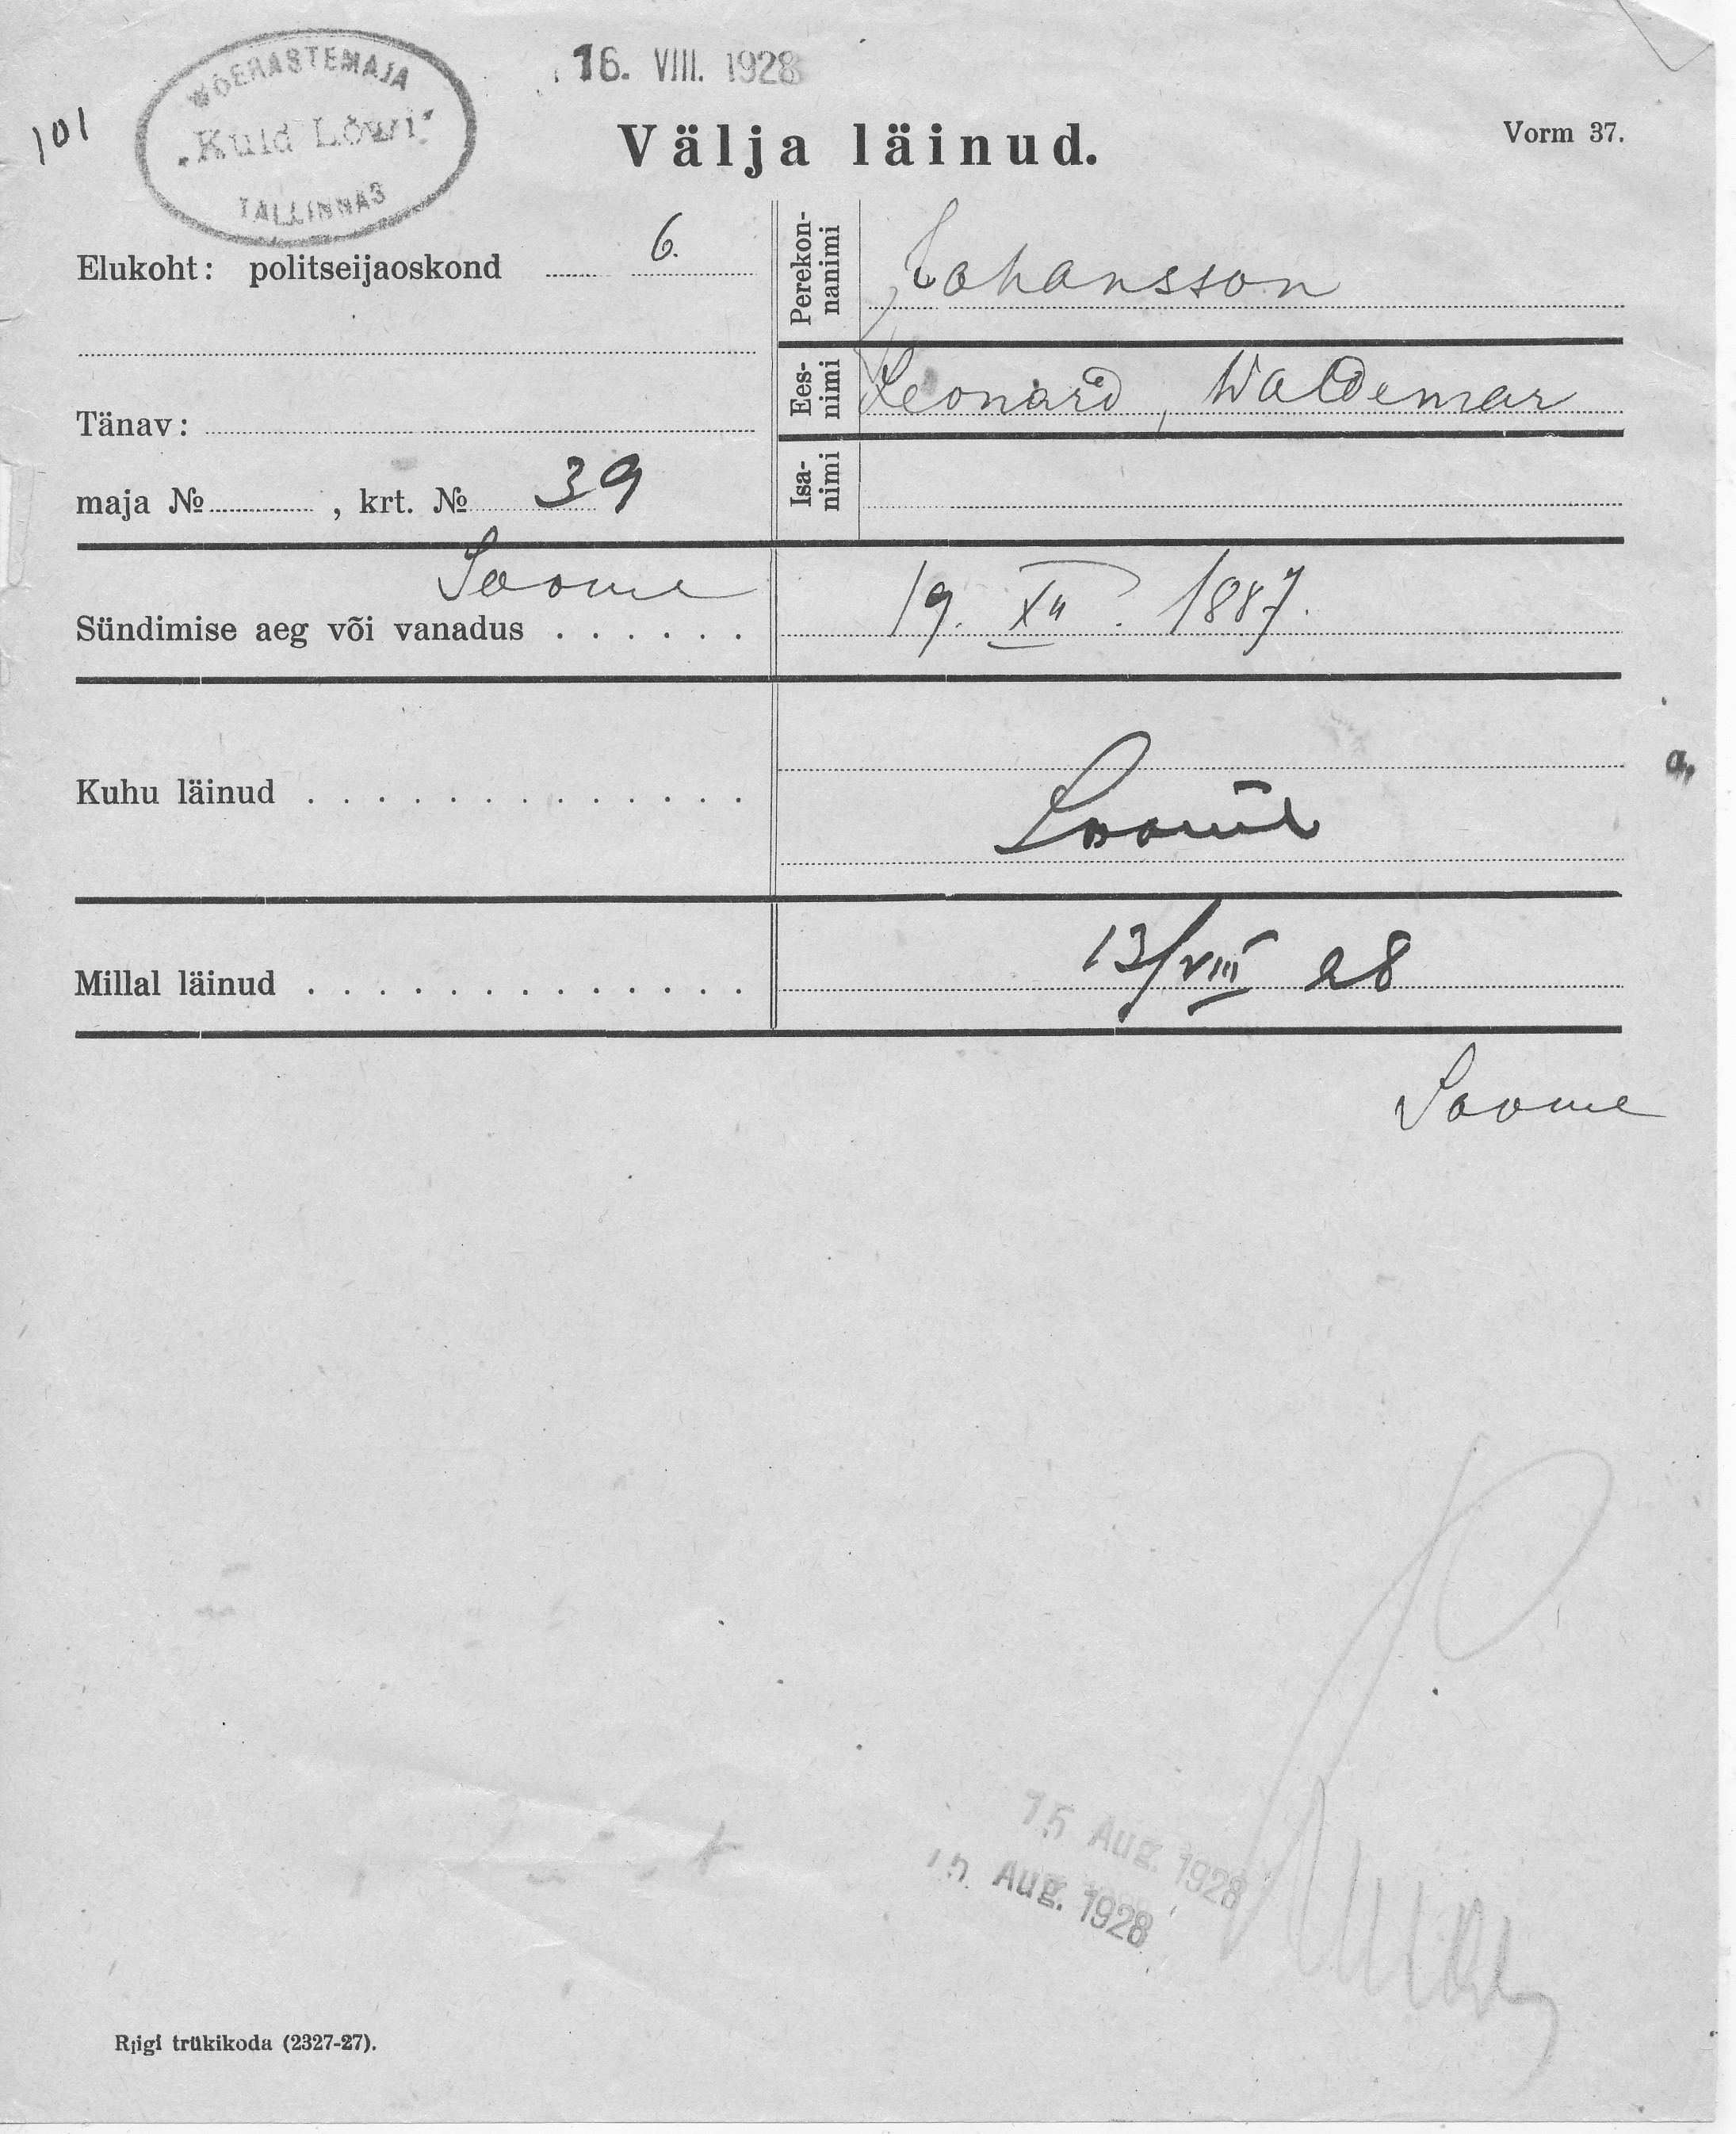 16. VIII. 1928
WÕERASTEMAJA
"Kuld Lõwi"
TALLINNAS
101
Välja läinud.
Vorm 37.
Elukoht: politseijaoskond 6.
Perekonnanimi Johansson
Eesnimi Leonard, Waldemar
Tänav:
maja № , krt. № 39
Isanimi
Soome
Sündimise aeg või vanadus . . . . . . 19. XII. 1887.
Kuhu läinud . . . . . . . . . . . . . Soome
Millal läinud . . . . . . . . . . . . . 13/VIII 28
Soome
15 Aug. 1928
15 Aug. 1928
Riigi trükikoda (2327-27).